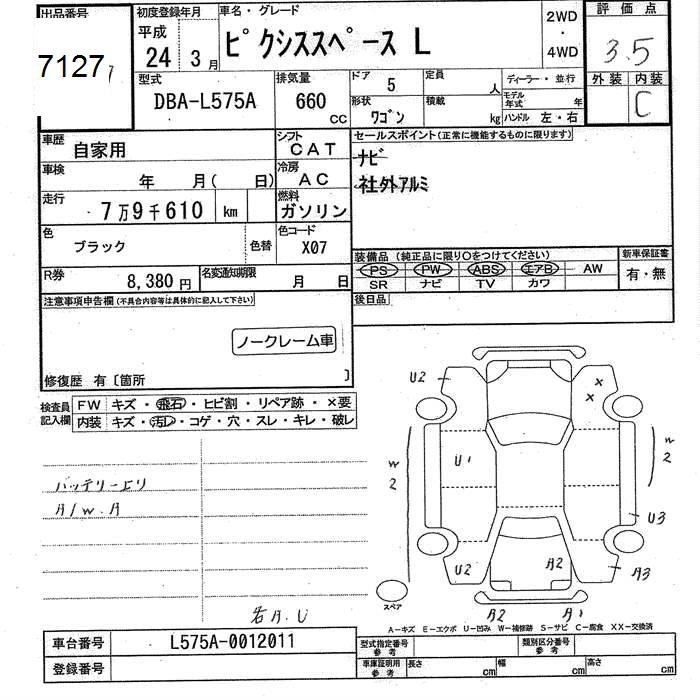 出品番号 初度登録年月 車名・グレード 2WD ・ 4WD 評価点
71277 平成 24年 3月 ピクシススペース L 3.5
型式 排気量 ドア 5 定員 人 ディーラー・並行 外装 内装
DBA-L575A 660 CC 形状 ワゴン 積載 kg モデル年式 年 ハンドル 左・右 C
車歴 自家用 シフト CAT セールスポイント(正常に機能するものに限ります)
車検 年 月( 日) 冷房 AC ナビ
社外アルミ
走行 7万9千610 km 燃料 ガソリン
色 ブラック 色替 色コード X07 装備品 (純正品に限り○をつけてください) 新車保証書
PS PW ABS エアB AW 有・無
R券 8,380円 名変通知期限 月 日 SR ナビ TV カワ
注意事項申告欄(不具合内容等は具体的に記入して下さい) 後日品
ノークレーム車
修復歴 有〔箇所 〕
検査員記入欄 FW キズ・飛石・ヒビ割・リペア跡・×要
内装 キズ・汚レ・コゲ・穴・スレ・キレ・破レ
U2 × ×
W2 U1 W2
バッテリー上り
A/W.A
U3
U2 A2 A3
スペア
若A.U A2 A1
A-キズ E-エクボ U-凹み W-補修跡 S-サビ C-腐食 XX-交換済
車台番号 L575A-0012011 型式指定番号 参考 類別区分番号 参考
登録番号 車庫証明用 参考 長さ cm 幅 cm 高さ cm